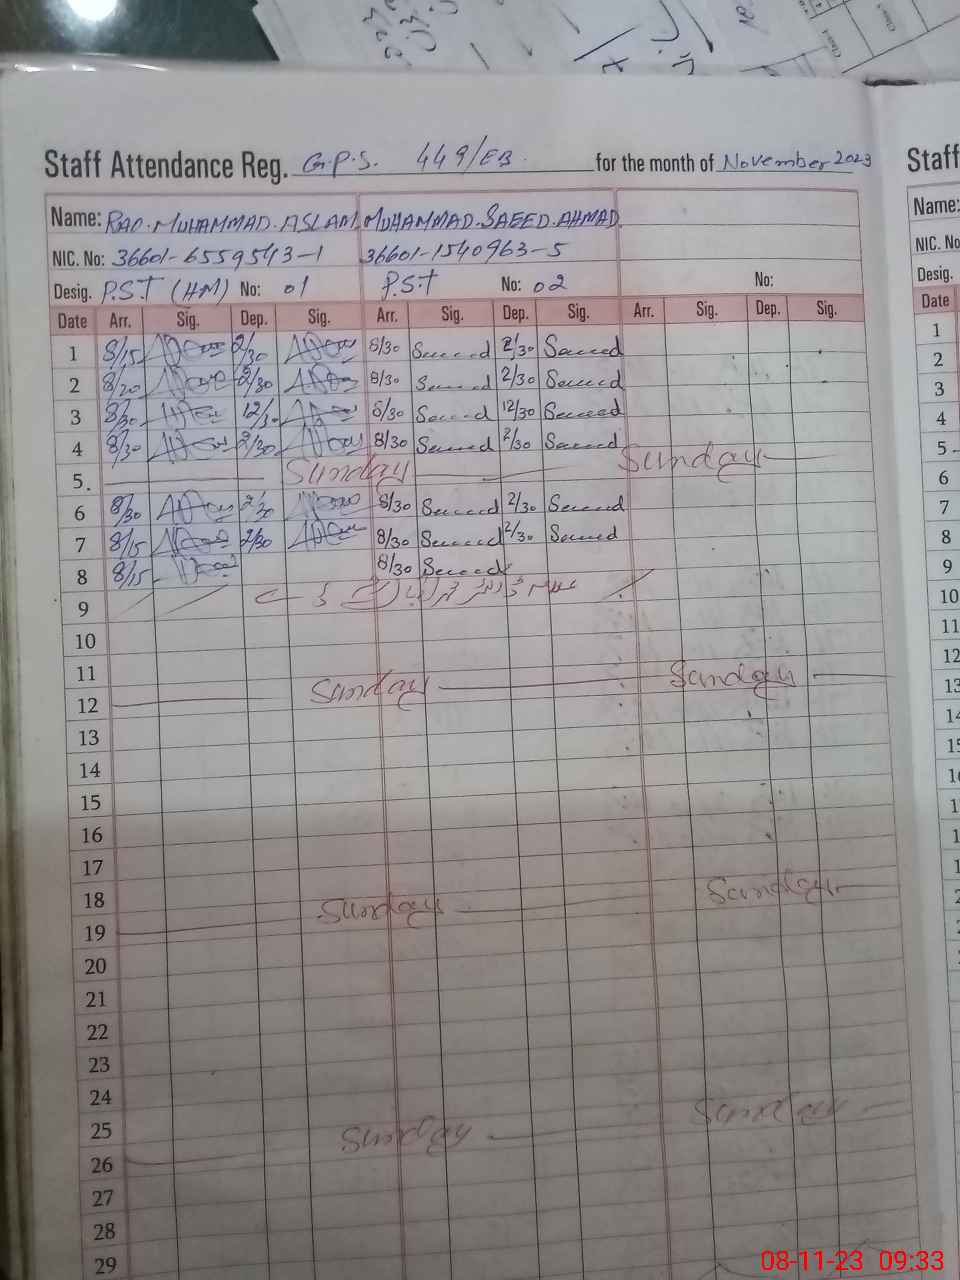 Staff Attendance Reg. G.P.S. 449/EB. for the month of November 2023
Name: RAO. MUHAMMAD. ASLAM MUHAMMAD. SAEED. AHMAD
NIC. No: 36601-6559543-1 36601-1540963-5
Desig. P.S.T (HM) No: 01 P.S.T No: 02 No:
Date Arr. Sig. Dep. Sig. Arr. Sig. Dep. Sig. Arr. Sig. Dep. Sig.
1 8/15 2/30 8/30 Saeed 2/30 Saeed
2 8/20 2/30 8/30 Saeed 2/30 Saeed
3 8/30 12/30 8/30 Saeed 12/30 Saeed
4 8/30 2/30 8/30 Saeed 2/30 Saeed
5. Sunday Sunday
6 8/30 2/30 8/30 Saeed 2/30 Saeed
7 8/15 2/30 8/30 Saeed 2/30 Saeed
8 8/15 8/30 Saeed
9
10
11
12 Sunday Sunday
13
14
15
16
17
18
19 Sunday Sunday
20
21
22
23
24
25
26 Sunday Sunday
27
28
29
Staff
Name:
NIC. No
Desig.
Date
1
2
3
4
5
6
7
8
9
10
11
12
13
14
15
08-11-23 09:33